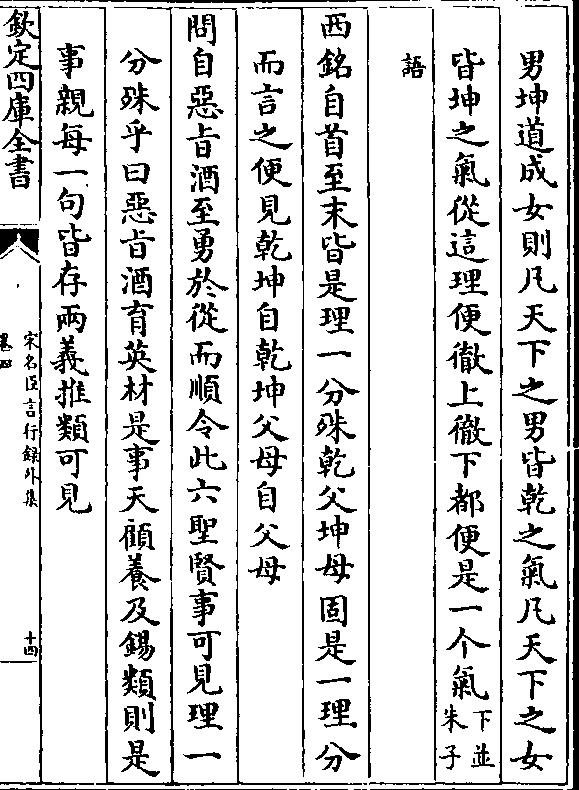 男坤道成女則凡天下之男皆乾之氣凡天下之女
皆坤之氣從這理便徹上徹下都便是一个氣下並朱子
語
西銘自首至末皆是理一分殊乾父坤母固是一理分
而言之便見乾坤自乾坤父母自父母
問自惡旨酒至勇於從而順令此六聖賢事可見理一
分殊乎曰惡旨酒育英材是事天顧養及錫類則是
事親每一句皆存兩義推類可見
欽定四庫全書
宋名臣言行録外集
卷四
十四